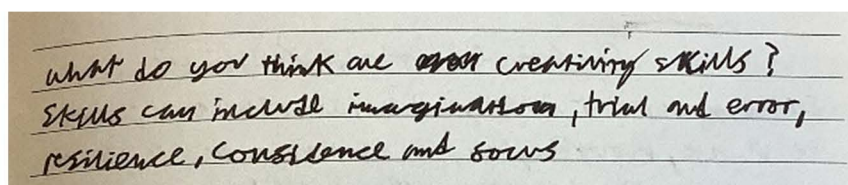 what do you think are creativity skills?
skills can include imagination, trial and error,
resilience, confidence and focus